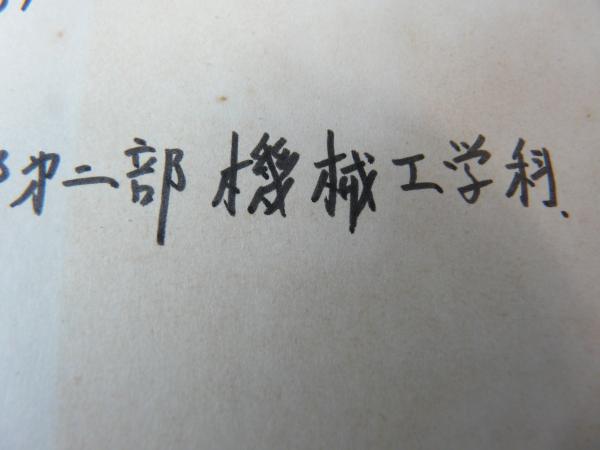 第二部 機械工学科.